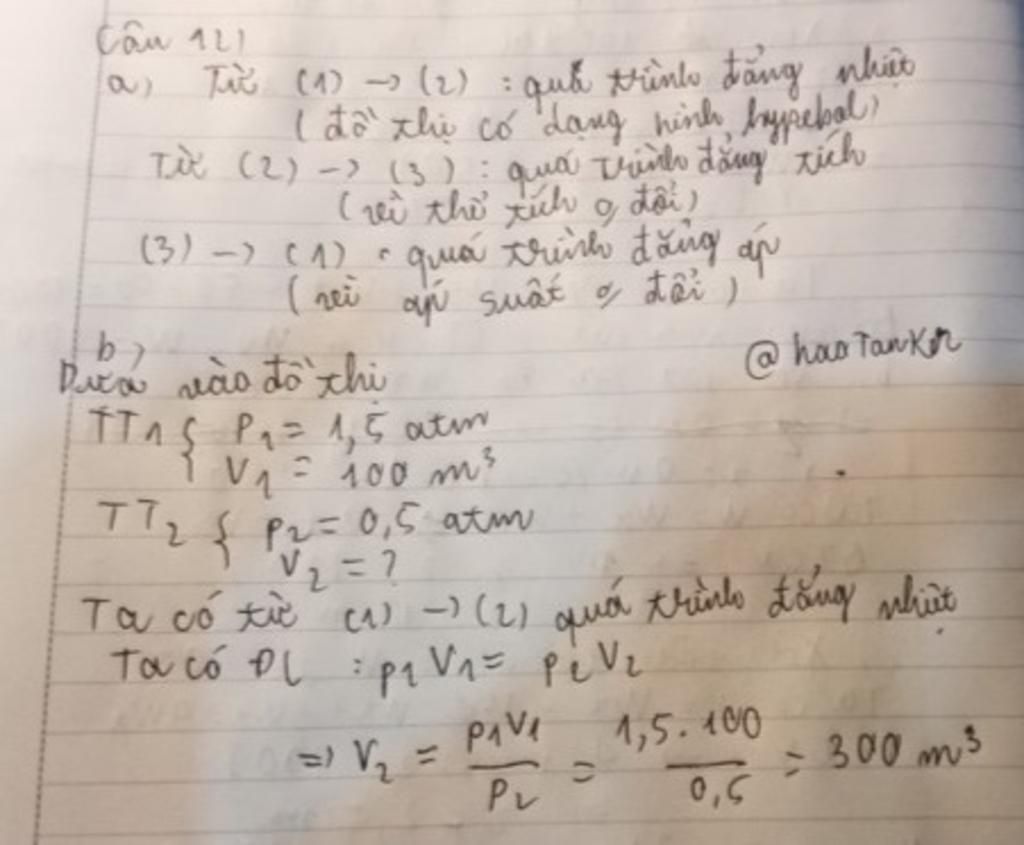 Câu 12)
a) Từ (1) → (2) : quá trình đẳng nhiệt
( đồ thị có dạng hình hypebol)
Từ (2) → (3) : quá trình đẳng tích
( vì thể tích o đổi)
(3) → (1) : quá trình đẳng áp
( vì áp suất o đổi )
b)
@haoTanKn
Dựa vào đồ thị
TT1 { P1 = 1,5 atm
V1 = 100 m³
TT2 { P2 = 0,5 atm
V2 = ?
Ta có từ (1) → (2) quá trình đẳng nhiệt
Ta có ĐL : P1V1 = P2V2
=> V2 = P1V1/P2 = 1,5.100/0,5 = 300 m³